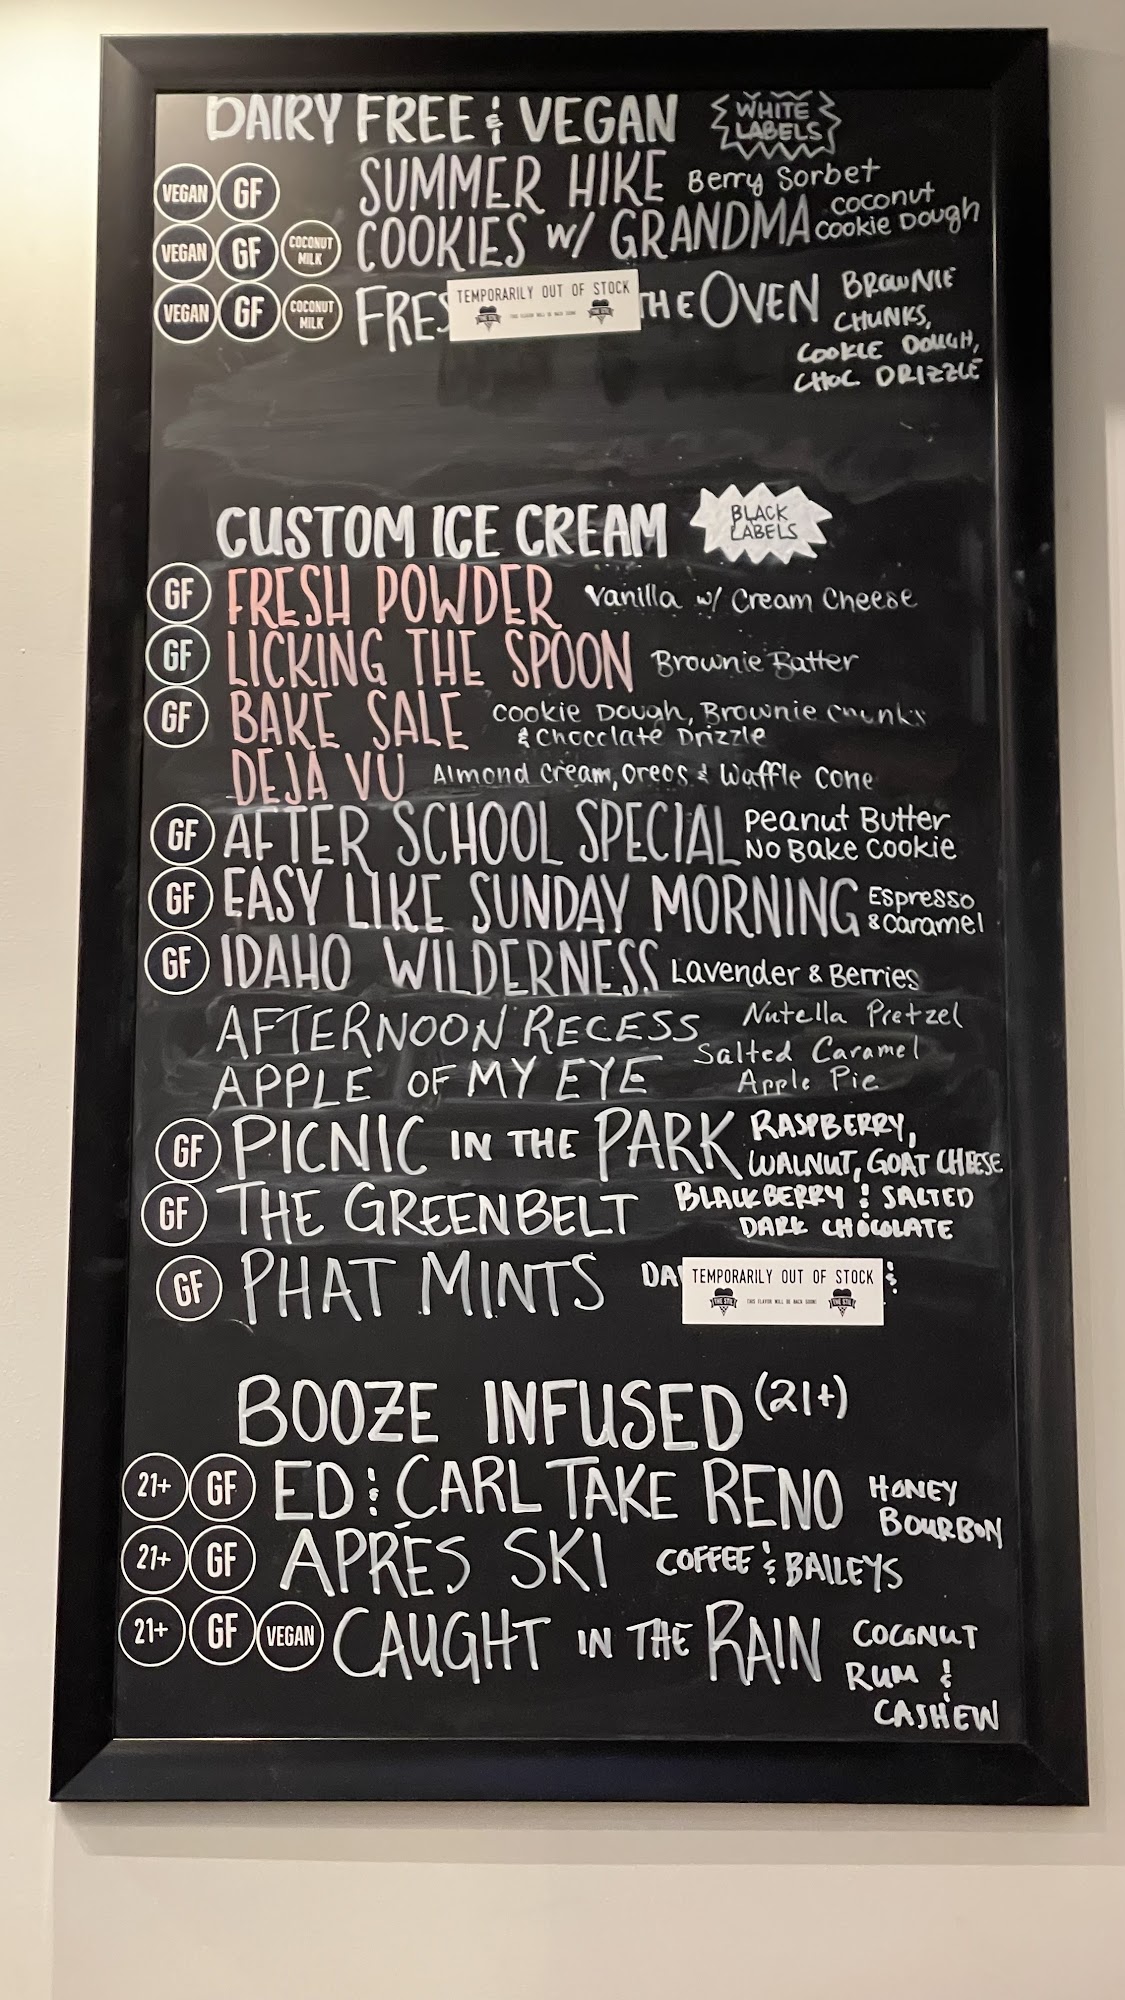 DAIRY FREE & VEGAN WHITE LABELS
VEGAN GF SUMMER HIKE Berry Sorbet
VEGAN GF COCONUT MILK COOKIES W/ GRANDMA Coconut Cookie Dough
VEGAN GF COCONUT MILK FRES THE OVEN BROWNIE CHUNKS, COOKIE DOUGH, CHOC DRIZZLE
TEMPORARILY OUT OF STOCK
CUSTOM ICE CREAM BLACK LABELS
GF FRESH POWDER Vanilla w/ Cream Cheese
GF LICKING THE SPOON Brownie Batter
GF BAKE SALE Cookie Dough, Brownie Chunks & Chocolate Drizzle
DEJA VU Almond Cream, Oreos & Waffle Cone
GF AFTER SCHOOL SPECIAL Peanut Butter No Bake Cookie
GF EASY LIKE SUNDAY MORNING Espresso & Caramel
GF IDAHO WILDERNESS Lavender & Berries
AFTERNOON RECESS Nutella Pretzel
APPLE OF MY EYE Salted Caramel Apple Pie
GF PICNIC IN THE PARK RASPBERRY, WALNUT, GOAT CHEESE
GF THE GREENBELT BLACKBERRY & SALTED DARK CHOCOLATE
GF PHAT MINTS DA &
TEMPORARILY OUT OF STOCK
THIS FLAVOR WILL BE BACK SOON!
BOOZE INFUSED (21+)
21+ GF ED & CARL TAKE RENO HONEY BOURBON
21+ GF APRÉS SKI COFFEE & BAILEYS
21+ GF VEGAN CAUGHT IN THE RAIN COCONUT RUM & CASHEW